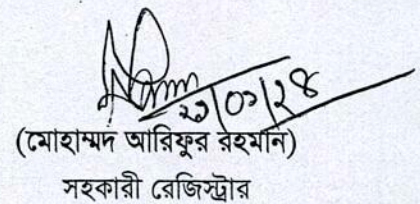 ২১/০১/২৪
(মোহাম্মদ আরিফুর রহমান)
সহকারী রেজিস্ট্রার